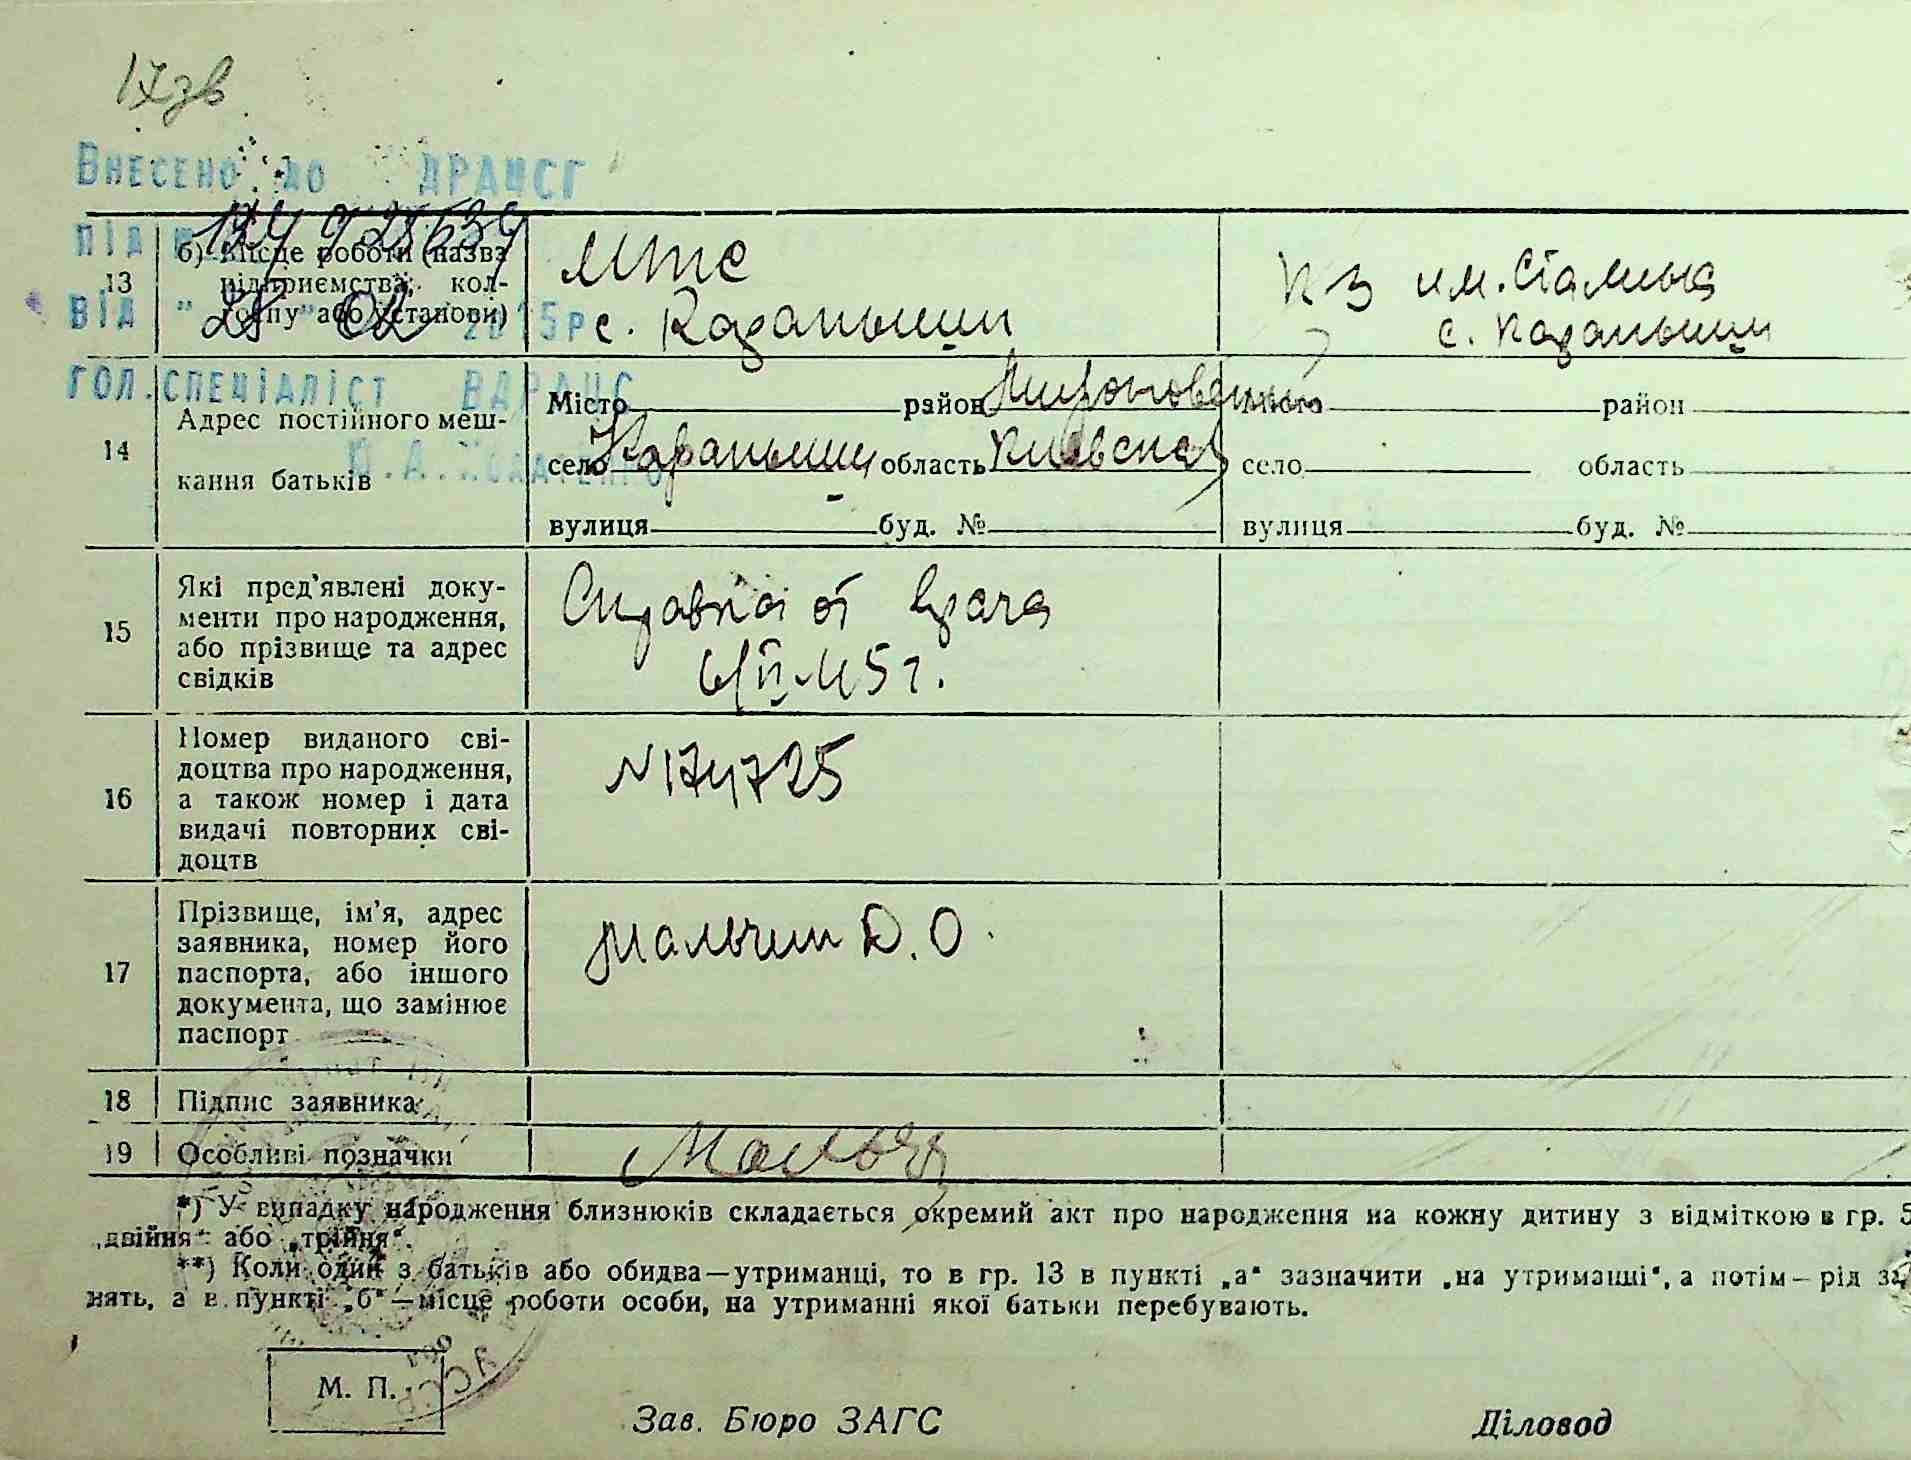 17зв
Внесено до ДРАЦСГ
під
від " 25 " 02 2015р
гол.спеціаліст ВДРАЦС
13
б) Місце роботи (назва
підприємства, кол-
госпу або установи)
МТС
с. Карапыши
КЗ им. Сталина
с. Карапыши
14
Адрес постійного меш-
кання батьків
Місто район Мироновский
село Карапыши область Киевская
вулиця буд. №
Місто район
село область
вулиця буд. №
15
Які пред'явлені доку-
менти про народження,
або прізвище та адрес
свідків
Справка от врача
45 г.
16
Номер виданого сві-
доцтва про народження,
а також номер і дата
видачі повторних сві-
доцтв
N 174725
17
Прізвище, ім'я, адрес
заявника, номер його
паспорта, або іншого
документа, що замінює
паспорт
Мальчин Д. О.
18 Підпис заявника
19 Особливі позначки
*) У випадку народження близнюків складається окремий акт про народження на кожну дитину з відміткою в гр. 5
„двійня“ або „трійня“.
**) Коли один з батьків або обидва—утриманці, то в гр. 13 в пункті „а“ зазначити „на утриманні“, а потім—рід за-
нять, а в пункті „б“—місце роботи особи, на утриманні якої батьки перебувають.
М. П.
Зав. Бюро ЗАГС Діловод